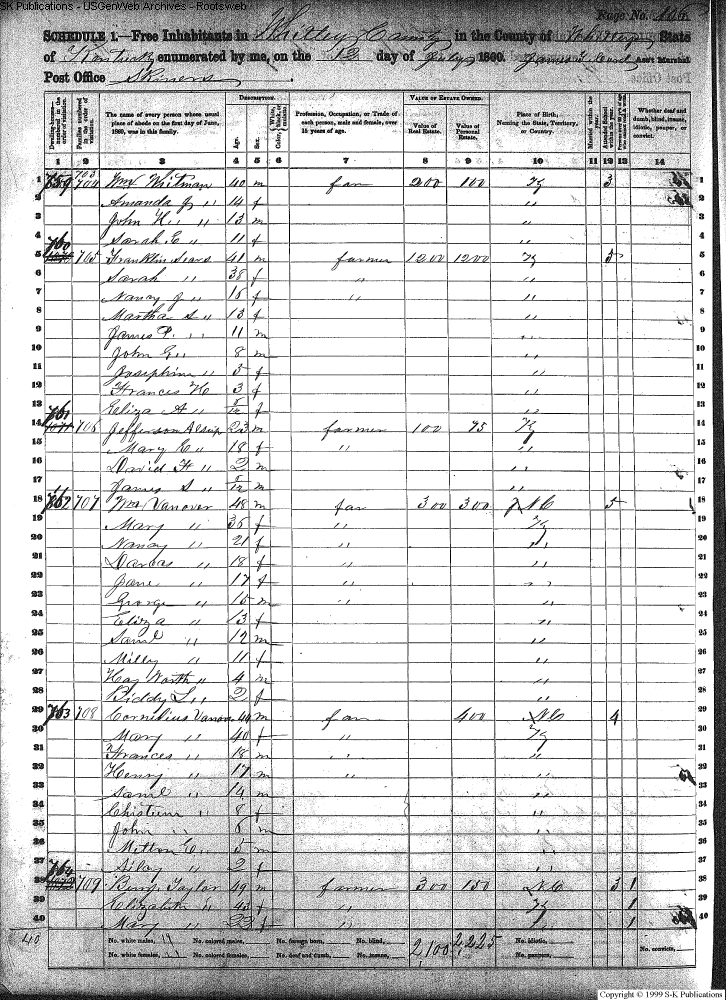 SK Publications - USGenWeb Archives - Rootsweb
Page No. 106
SCHEDULE 1.—Free Inhabitants in Whitley County in the County of Whitley State
of Kentucky enumerated by me, on the 12 day of July 1860. Ass't Marshal
Post Office Skiners
DESCRIPTION. VALUE OF ESTATE OWNED.
Dwelling-houses—numbered in the order of visitation. Families numbered in the order of visitation. The name of every person whose usual place of abode on the first day of June, 1860, was in this family. Age. Sex. Color, White, black, or mulatto. Profession, Occupation, or Trade of each person, male and female, over 15 years of age. Value of Real Estate. Value of Personal Estate. Place of Birth, Naming the State, Territory, or Country. Married within the year. Attended School within the year. Whether deaf and dumb, blind, insane, idiotic, pauper, or convict.
1 2 3 4 5 6 7 8 9 10 11 12 13 14
1 759 703 704 Wm Whitman 40 m far 200 100 Ky 3 1
2 Amanda J " 14 f " 2
3 John H " 13 m " 3
4 Sarah E " 11 f " 4
5 760 705 Franklin Sears 41 m farmer 1200 1200 Ky 5 5
6 Sarah " 38 f " " 6
7 Nancy J " 15 f " " 7
8 Martha S " 13 f " 8
9 James P. " 11 m " 9
10 John G " 8 m " 10
11 Josephine " 5 f " 11
12 Frances H 3 f " 12
13 Eliza A " f " 13
14 761 706 Jefferson Alsup 23 m farmer 100 75 Ky 14
15 Mary E " 18 f " " 15
16 David H " 2 m " 16
17 James S " m " 17
18 762 707 Wm Vanover 48 m far 300 300 NC 5 18
19 Mary " 36 f " Ky 19
20 Nancy " 21 f " " 20
21 Darcas " 18 f " " 21
22 Jane " 17 f " " 22
23 George " 15 m " " 23
24 Eliza " 13 f " 24
25 Saml " 12 m " 25
26 Milly " 11 f " 26
27 Hay Worth " 4 m " 27
28 Biddy L " 2 f " 28
29 763 708 Cornelius Vanover 44 m far 400 NC 4 29
30 Mary " 40 f " Ky 30
31 Frances " 18 m " " 31
32 Henry " 17 m " " 32
33 Saml " 14 m " 33
34 " 8 f " 34
35 John " 6 m " 35
36 Milton E " 5 m " 36
37 " 2 f " 37
38 764 709 Taylor 49 m farmer 300 150 NC 3 1 38
39 Elizabeth " f " Ky 1 39
40 Mary " 22 f " " 1 40
40 No. white males, 19 No. colored males, No. foreign born, No. blind, 2,100 2,225 No. idiotic, No. convicts,
No. white females, 21 No. colored females, No. deaf and dumb, No. insane, No. paupers,
Copyright © 1999 S-K Publications